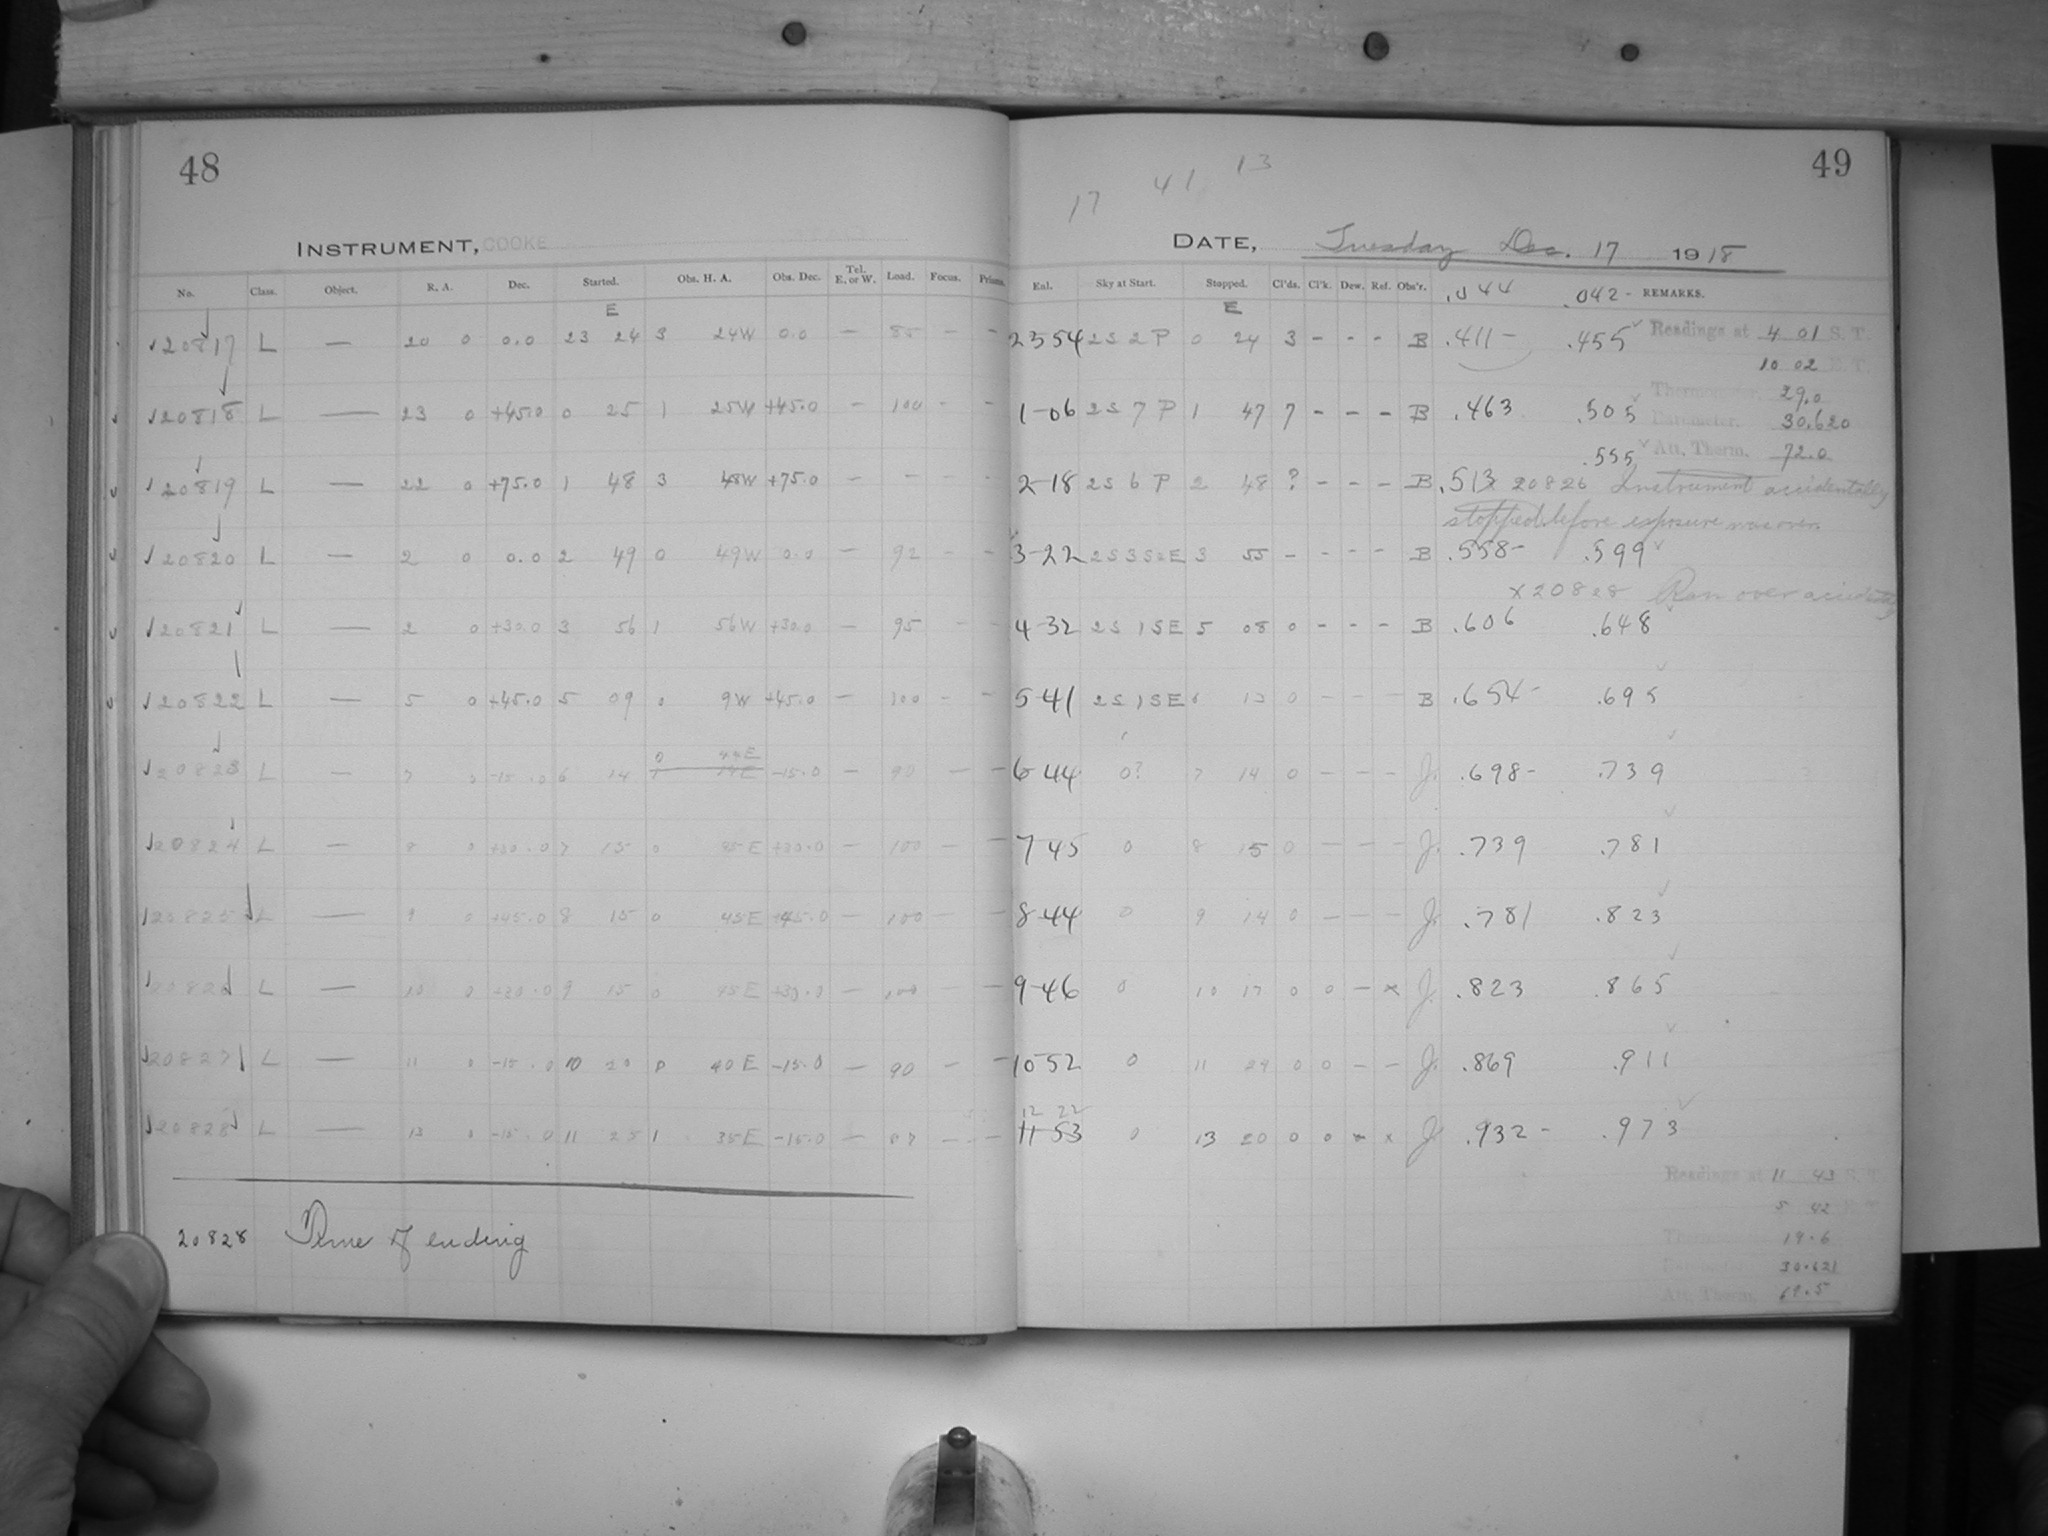 48
INSTRUMENT, COOKE
No. Class. Object. R. A. Dec. Started. Obs. H. A. Obs. Dec. Tel. E. or W. Load. Focus. Prisms.
E
20817 L — 20 0 0.0 23 24 3 24W 0.0 — 85 — —
20818 L — 23 0 +45.0 0 25 1 25W +45.0 — 100 — —
20819 L — 22 0 +75.0 1 48 3 48W +75.0 — — — —
20820 L — 2 0 0.0 2 49 0 49W 0.0 — 92 — —
20821 L — 2 0 +30.0 3 56 1 56W +30.0 — 95 — —
20822 L — 5 0 +45.0 5 09 0 9W +45.0 — 100 — —
0 44E
20823 L — 7 0 -15.0 6 14 -15.0 — 90 — —
20824 L — 8 0 +30.0 7 15 0 45E +30.0 — 100 — —
20825 L — 9 0 +45.0 8 15 0 45E +45.0 — 100 — —
20826 L — 10 0 +30.0 9 15 0 45E +30.0 — 100 — —
20827 L — 11 0 -15.0 10 20 0 40E -15.0 — 90 — —
20828 L — 13 0 -15.0 11 25 1 35E -15.0 — 87 — —
20828 Time of ending
49
17 41 13
DATE, Tuesday Dec. 17 1918
Enl. Sky at Start. Stopped. Cl'ds. Cl'k. Dew. Ref. Obs'r. .044 .042- REMARKS.
E
23 54 2S 2 P 0 24 3 - - - B .411- .455 Readings at 4 01 S. T.
10 02 E. T.
Thermometer. 29.0
1-06 2S 7 P 1 47 7 - - - B .463 .505 Barometer. 30.620
.555 Att. Therm. 72.0
2-18 2S 6 P 2 48 ? - - - B .513 x 20826 Instrument accidentally
stopped before exposure was over.
3-22 3 55 - - - - B .558- .599
x 20828 Ran over accidentally
4-32 2S 1SE 5 08 0 - - - B .606 .648
5-41 2S 1SE 6 13 0 - - - B .654- .695
6-44 0? 7 14 0 - - - J. .698- .739
7 45 0 8 15 0 - - - J. .739 .781
8-44 0 9 14 0 - - - J. .781 .823
9-46 0 10 17 0 0 - x J. .823 .865
10 52 0 11 24 0 0 - - J. .869 .911
12 22
11-53 0 13 20 0 0 - x J .932- .973
Readings at 11 43 S. T.
5 42 E. T.
Thermometer. 19.6
Barometer. 30.621
Att. Therm. 69.5